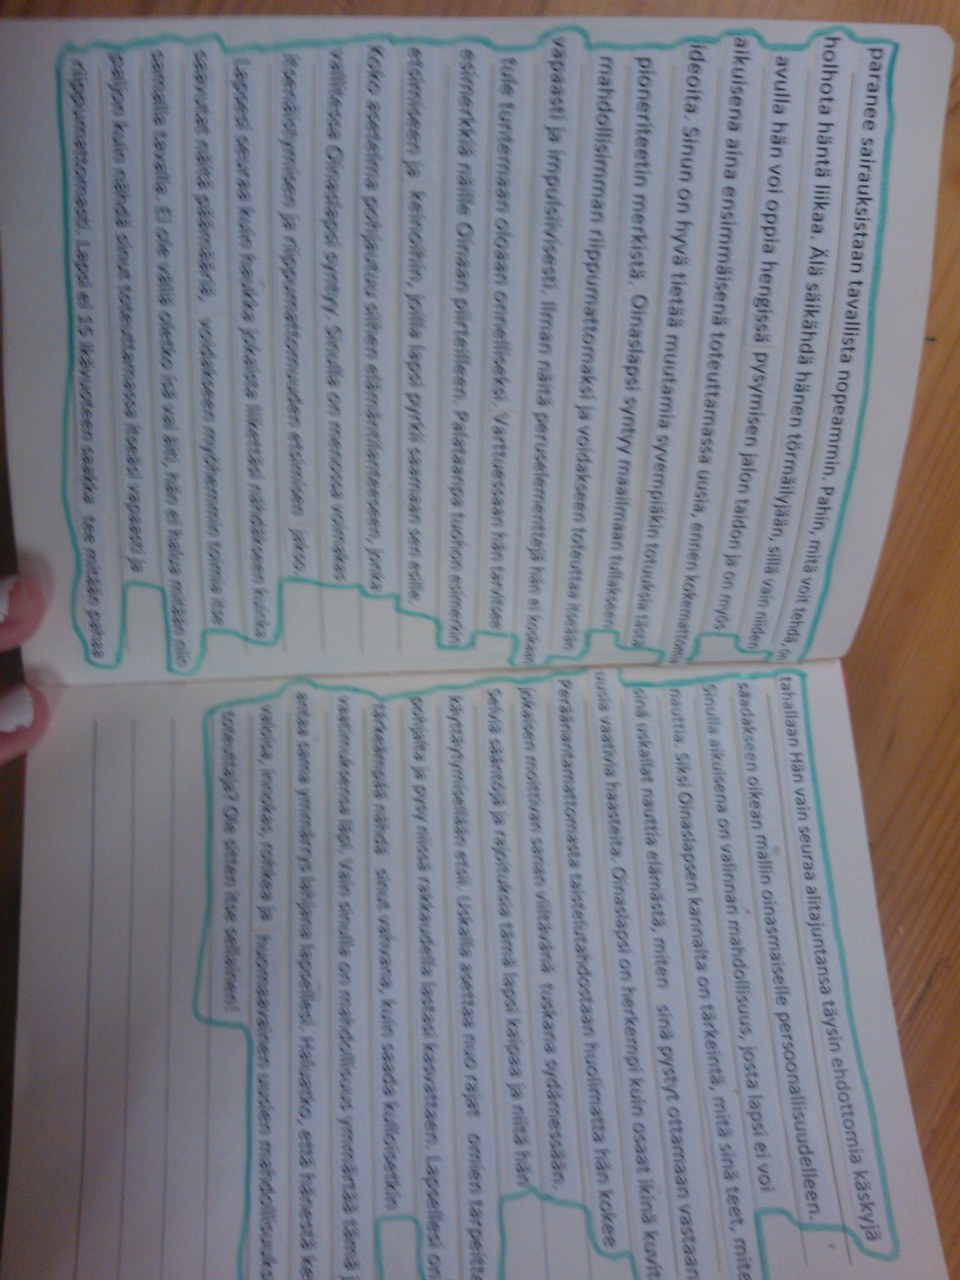 paranee sairauksistaan tavallista nopeammin. Pahin, mitä voit tehdä, on
holhota häntä liikaa. Älä säikähdä hänen törmäilyjään, sillä vain niiden
avulla hän voi oppia hengissä pysymisen jalon taidon ja on myös
aikuisena aina ensimmäisenä toteuttamassa uusia, ennen kokemattomia
ideoita. Sinun on hyvä tietää muutamia syvempiäkin totuuksia tästä
pioneriteetin merkistä. Oinaslapsi syntyy maailmaan tullakseen
mahdollisimman riippumattomaksi ja voidakseen toteuttaa itseään
vapaasti ja impulsiivisesti. Ilman näitä peruselementtejä hän ei koskaan
tule tuntemaan oloaan onnelliseksi. Varttuessaan hän tarvitsee
esimerkkiä näille Oinaan piirteilleen. Palataanpa tuohon esimerkin
etsimiseen ja keinoihin, joilla lapsi pyrkii saamaan sen esille.
Koko asetelma pohjautuu siihen elämäntilanteeseen, jonka
vallitessa Oinaslapsi syntyy. Sinulla on menossa voimakas
itsenäistymisen ja riippumattomuuden etsimisen jakso.
Lapsesi seuraa kuin haukka jokaista liikettäsi nähdäkseen kuinka
saavutat näitä päämääriä, voidakseen myöhemmin toimia itse
samalla tavalla. Ei ole väliä oletko isä vai äiti, hän ei halua mitään niin
paljon kuin nähdä sinut toteuttamassa itseäsi vapaasti ja
riippumattomasti. Lapsi ei 15 ikävuoteen saakka tee mitään pahaa
tahallaan Hän vain seuraa alitajuntansa täysin ehdottomia käskyjä
saadakseen oikean mallin oinasmaiselle persoonallisuudelleen.
Sinulla aikuisena on valinnan mahdollisuus, josta lapsi ei voi
nauttia. Siksi Oinaslapsen kannalta on tärkeintä, mitä sinä teet, miten
sinä uskallat nauttia elämästä, miten sinä pystyt ottamaan vastaan
uusia vaativia haasteita. Oinaslapsi on herkempi kuin osaat ikinä
Periäänantamattomasta taistelutahdostaan huolimatta hän kokee
jokaisen moittivan sanan viiltävänä tuskana sydämessään.
Selviä sääntöjä ja rajoituksia tämä lapsi kaipaa ja niitä hän
käyttäytymisellään etsii. Uskalla asettaa nuo rajat omien
pohjalta ja pysy niissä rakkaudella lastasi kasvattaen. Lapsellesi on
tärkeämpää nähdä sinut vahvana, kuin saada kulloisetkin
vaatimuksensa läpi. Vain sinulla on mahdollisuus ymmärtää tämä
antaa sama ymmärrys lahjana lapsellesi. Haluatko, että hänestä
valoisa, innokas, rohkea ja huomaavainen uusien
toteuttaja? Ole sitten itse sellainen!